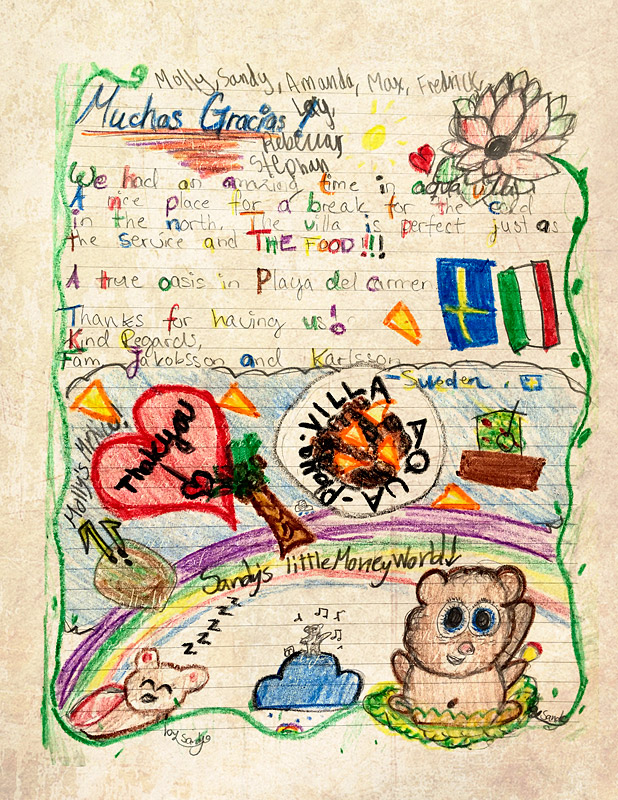 Molly, Sandy, Amanda, Max, Fredrick,
Muchas Gracias
Rebeccas
Stephan
We had an amazing time in aqua villa.
A nice place for a break for the cold
in the north. The villa is perfect just as
the service and THE FOOD!!!
A true oasis in Playa del carmen
Thanks for having us!
Kind Regards,
Fam Jakobsson and Karlsson
-Sweden.
Thank you
VILLA AQUA - Playa -
Molly's
Sandy's little Money World
z z z z z
by Sandy
by Sandy